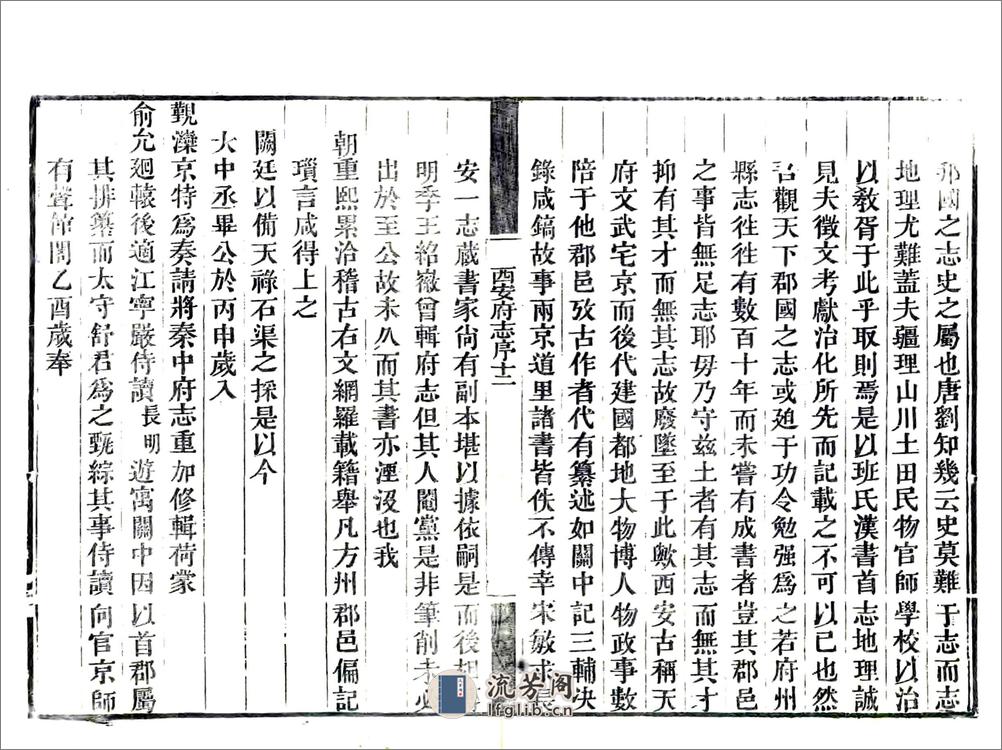 邦國之志史之屬也唐劉知幾云史莫難于志而志
地理尤難蓋夫疆理山川土田民物官師學校以治
以教胥于此乎取則焉是以班氏漢書首志地理誠
見夫徵文考獻治化所先而記載之不可以已也然
吾觀天下郡國之志或廹于功令勉强爲之若府州
縣志徃徃有數百十年而未嘗有成書者豈其郡邑
之事皆無足志耶毋乃守兹土者有其志而無其才
抑有其才而無其志故廢墜至于此歟西安古稱天
府文武宅京而後代建國都地大物博人物政事數
陪于他郡邑攷古作者代有纂述如關中記三輔决
錄咸鎬故事兩京道里諸書皆佚不傳幸宋敏求長
西安府志序十二
安一志蔵書家尚有副本堪以據依嗣是而後
明季王紹徽曾輯府志但其人閹黨是非筆削未必
出於至公故未久而其書亦湮没也我
朝重熙累洽稽古右文網羅載籍舉凡方州郡邑偏記
瑣言咸得上之
闕廷以備天祿石渠之採是以今
大中丞畢公於丙申歲入
覲灤京特爲奏請將秦中府志重加修輯荷蒙
俞允廻轅後適江寧嚴侍讀長明遊寓關中因以首郡屬
其排纂而太守舒君爲之甄綜其事侍讀向官京師
有聲館閣乙酉歲奉
流芳阁
lfglib.cn